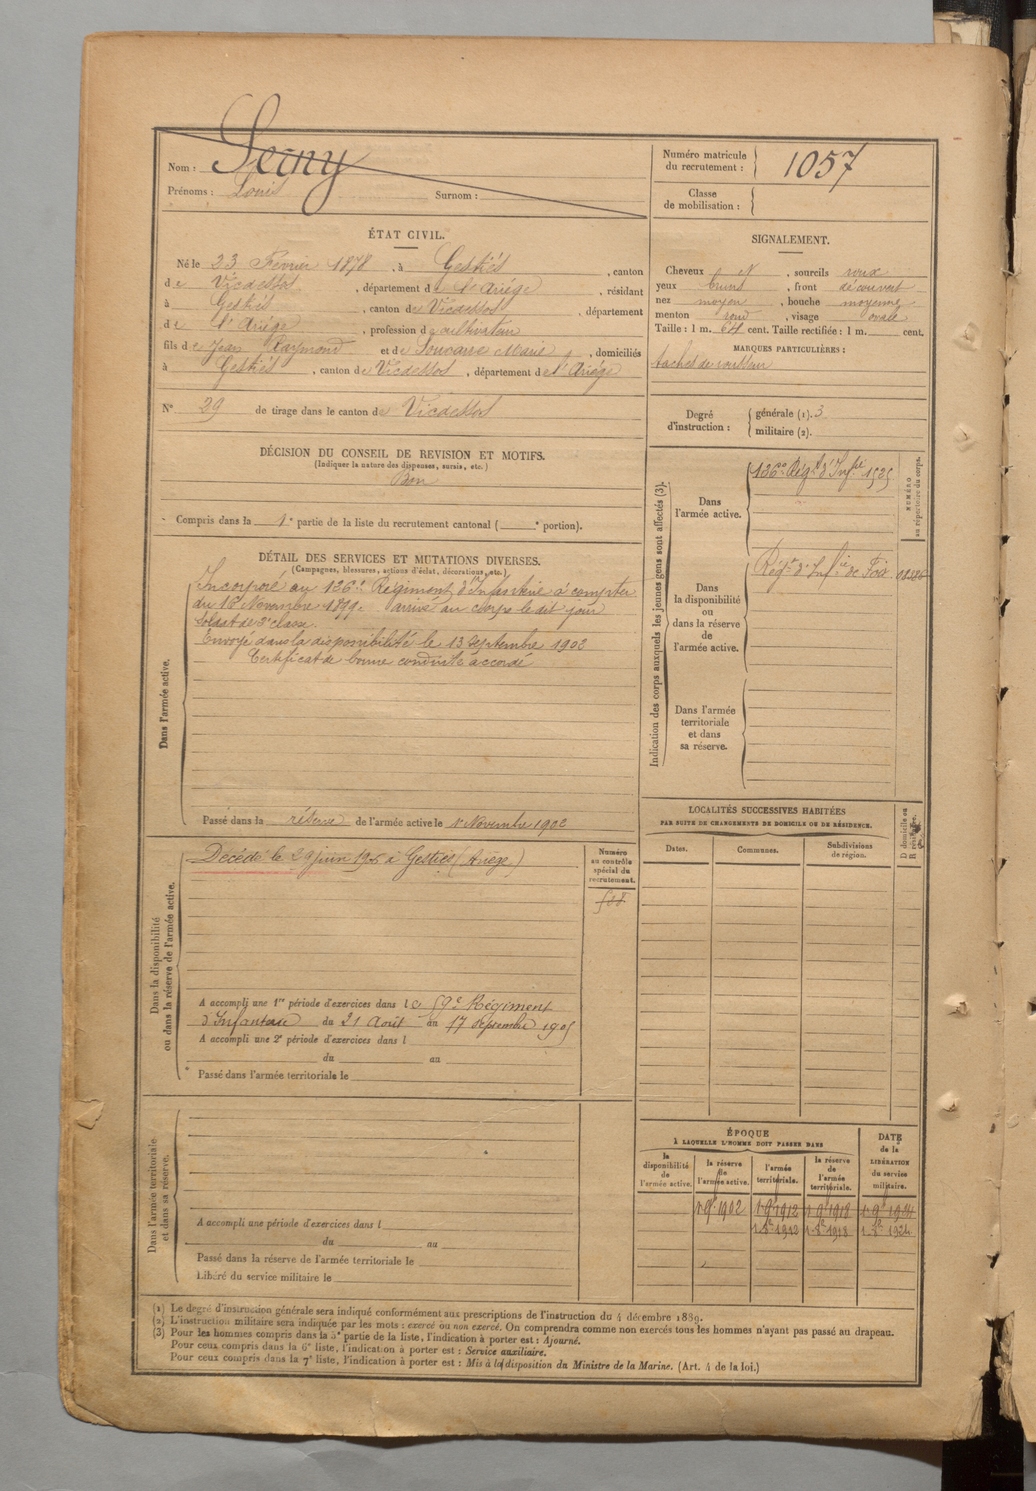 Nom : Segny
Prénoms : Louis Surnom :
Numéro matricule du recrutement : 1057
Classe de mobilisation :
ÉTAT CIVIL.
Né le 23 Février 1878, à Gestiès, canton
de Vicdessos, département de l'Ariège, résidant
à Gestiès, canton de Vicdessos, département
de l'Ariège, profession de cultivateur
fils de Jean Raymond et de Marie, domiciliés
à Gestiès, canton de Vicdessos, département de l'Ariège
N° 29 de tirage dans le canton de Vicdessos
SIGNALEMENT.
Cheveux , sourcils roux
yeux bruns, front découvert
nez moyen, bouche moyenne
menton rond, visage ovale
Taille : 1 m. 64 cent. Taille rectifiée : 1 m. cent.
MARQUES PARTICULIÈRES :
taches de rousseur
Degré d'instruction : générale (1). 3
militaire (2).
DÉCISION DU CONSEIL DE REVISION ET MOTIFS.
(Indiquer la nature des dispenses, sursis, etc.)
Bon
Compris dans la 1e partie de la liste du recrutement cantonal ( e portion).
DÉTAIL DES SERVICES ET MUTATIONS DIVERSES.
(Campagnes, blessures, actions d'éclat, décorations, etc.)
Dans l'armée active.
Incorporé au 126e Régiment d'Infanterie à compter
du 16 Novembre 1899. arrivé au corps le dit jour
soldat de 2e classe.
Envoyé dans la disponibilité le 13 Septembre 1902
Certificat de bonne conduite accordé
Passé dans la réserve de l'armée active le 1r Novembre 1902
Dans la disponibilité ou dans la réserve de l'armée active.
Décédé le 29 juin 1906 à Gestiès (Ariège)
Numéro au contrôle spécial du recrutement.
A accompli une 1re période d'exercices dans le 59e Régiment
d'Infanterie du 21 Août au 17 Septembre 1905
A accompli une 2e période d'exercices dans l
du au
Passé dans l'armée territoriale le
Dans l'armée territoriale et dans sa réserve.
A accompli une période d'exercices dans l
du au
Passé dans la réserve de l'armée territoriale le
Libéré du service militaire le
Indication des corps auxquels les jeunes gens sont affectés (3).
NUMÉRO au répertoire du corps.
Dans l'armée active.
126e Régt d'Infrie 1525
Dans la disponibilité ou dans la réserve de l'armée active.
Régt d'Infie de Foix
Dans l'armée territoriale et dans sa réserve.
LOCALITÉS SUCCESSIVES HABITÉES
PAR SUITE DE CHANGEMENTS DE DOMICILE OU DE RÉSIDENCE.
Dates. Communes. Subdivisions de région. D domicile ou R résidence.
ÉPOQUE
À LAQUELLE L'HOMME DOIT PASSER DANS
DATE de la LIBÉRATION du service militaire.
la disponibilité de l'armée active. la réserve de l'armée active. l'armée territoriale. la réserve de l'armée territoriale.
1r 9e 1902 1r 9e 1912 1r 9e 1918 1r 9e 1924
(1) Le degré d'instruction générale sera indiqué conformément aux prescriptions de l'instruction du 4 décembre 1889.
(2) L'instruction militaire sera indiquée par les mots : exercé ou non exercé. On comprendra comme non exercés tous les hommes n'ayant pas passé au drapeau.
(3) Pour les hommes compris dans la 5e partie de la liste, l'indication à porter est : Ajourné.
Pour ceux compris dans la 6e liste, l'indication à porter est : Service auxiliaire.
Pour ceux compris dans la 7e liste, l'indication à porter est : Mis à la disposition du Ministre de la Marine. (Art. 4 de la loi.)